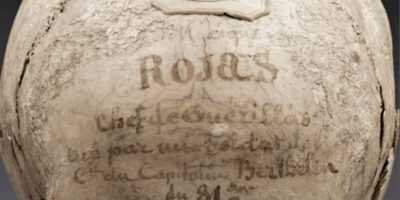 ROJAS
Chef de Guérillas
par un soldat
Cie du Capitaine Berthelin
du 81